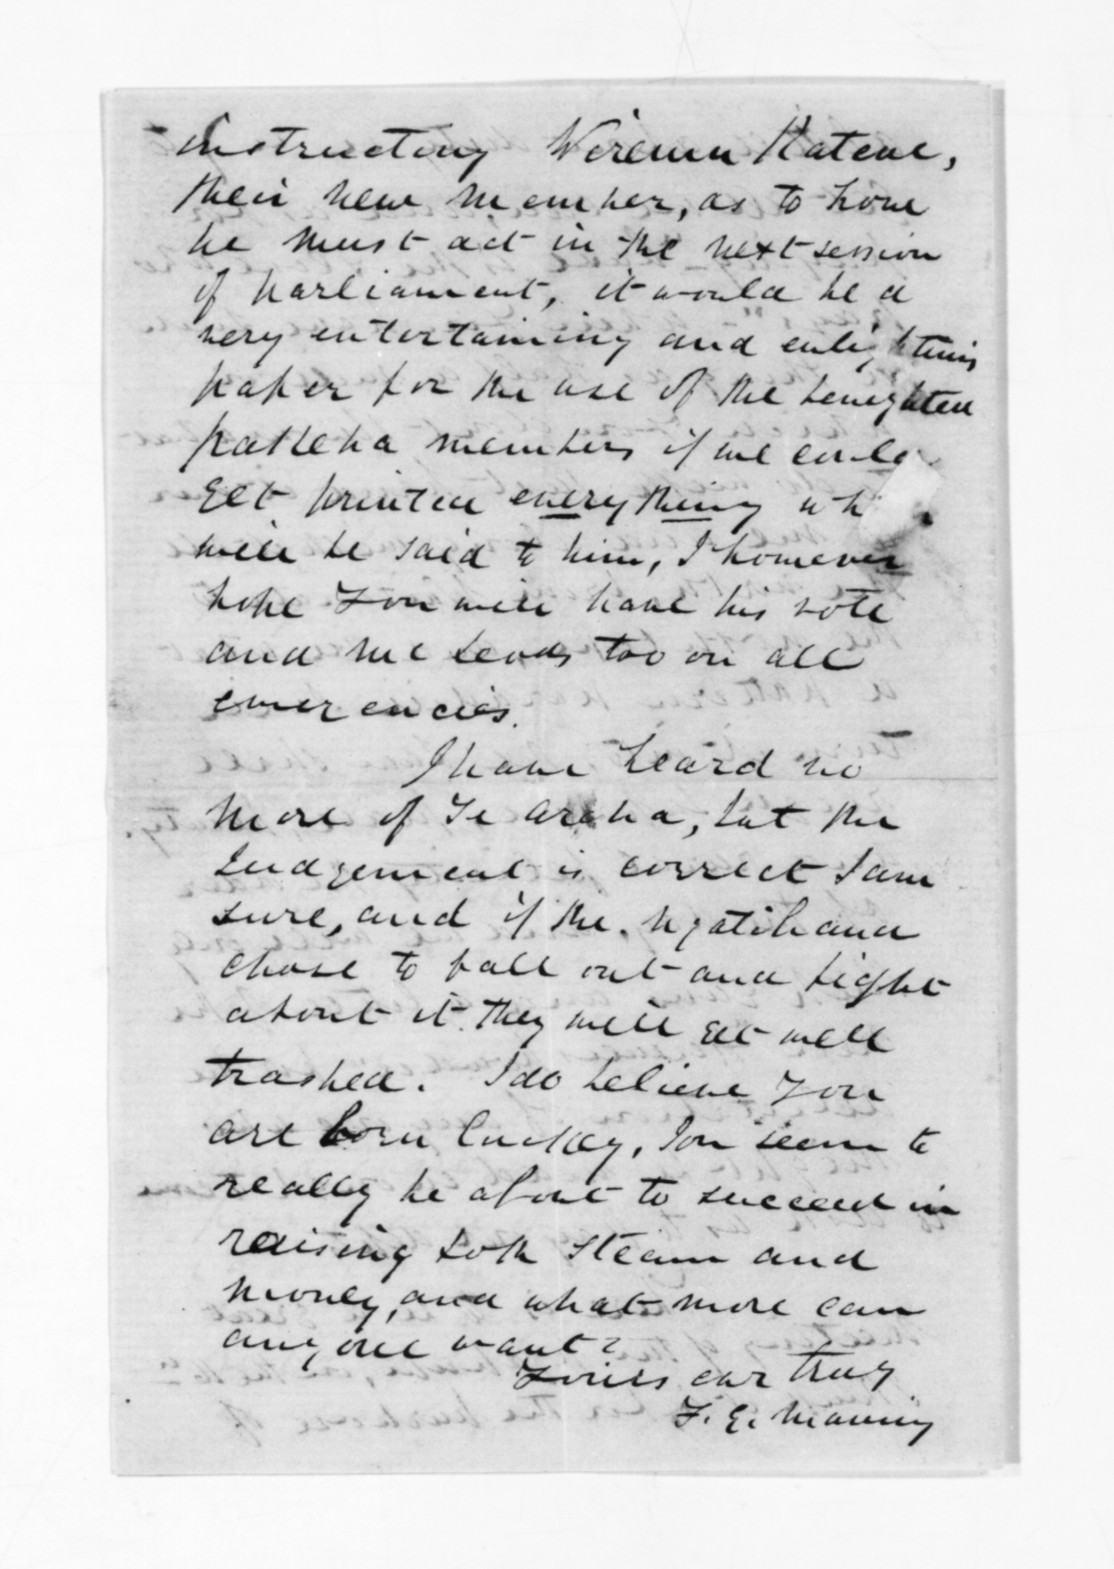 instructing Wiremu Katene,
their new member, as to how
he must act in the next session
of parliament, it would be a
very entertaining and enlightening
paper for the use of the benighted
pakeha members if we could
get printed everything wh
will be said to him, I however
hope you will have his vote
and me bends too on all
emergencies.
I have heard no
more of Te Aroha, but the
Judgement is correct I am
sure, and if the Ngatihaua
chose to fall out and fight
about it they will get well
trashed. I do believe you
are born luckey, You seem to
really be about to succeed in
raising both steam and
money, and what more can
anyone want?
Yours ever truly
F. E. Maning